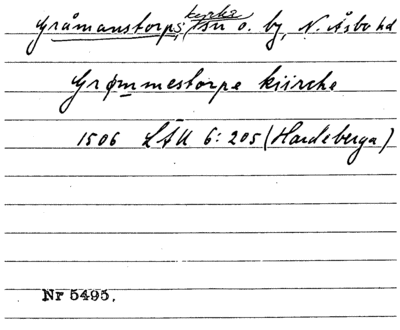 Gråmanstorps kyrka, sn o. by, N. Åsbo hd
Grømmestorpe kiirche
1506 LÄU 6:205 (Hardeberga)
Nr 5495.